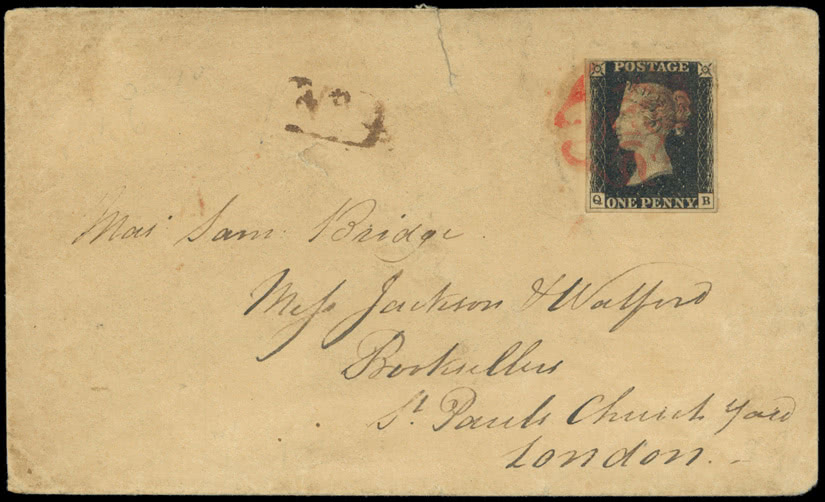 POSTAGE
ONE PENNY
Q B
Sam. Bridge.
Mess Jackson & Walford
Booksellers
St. Pauls Church Yard
London.